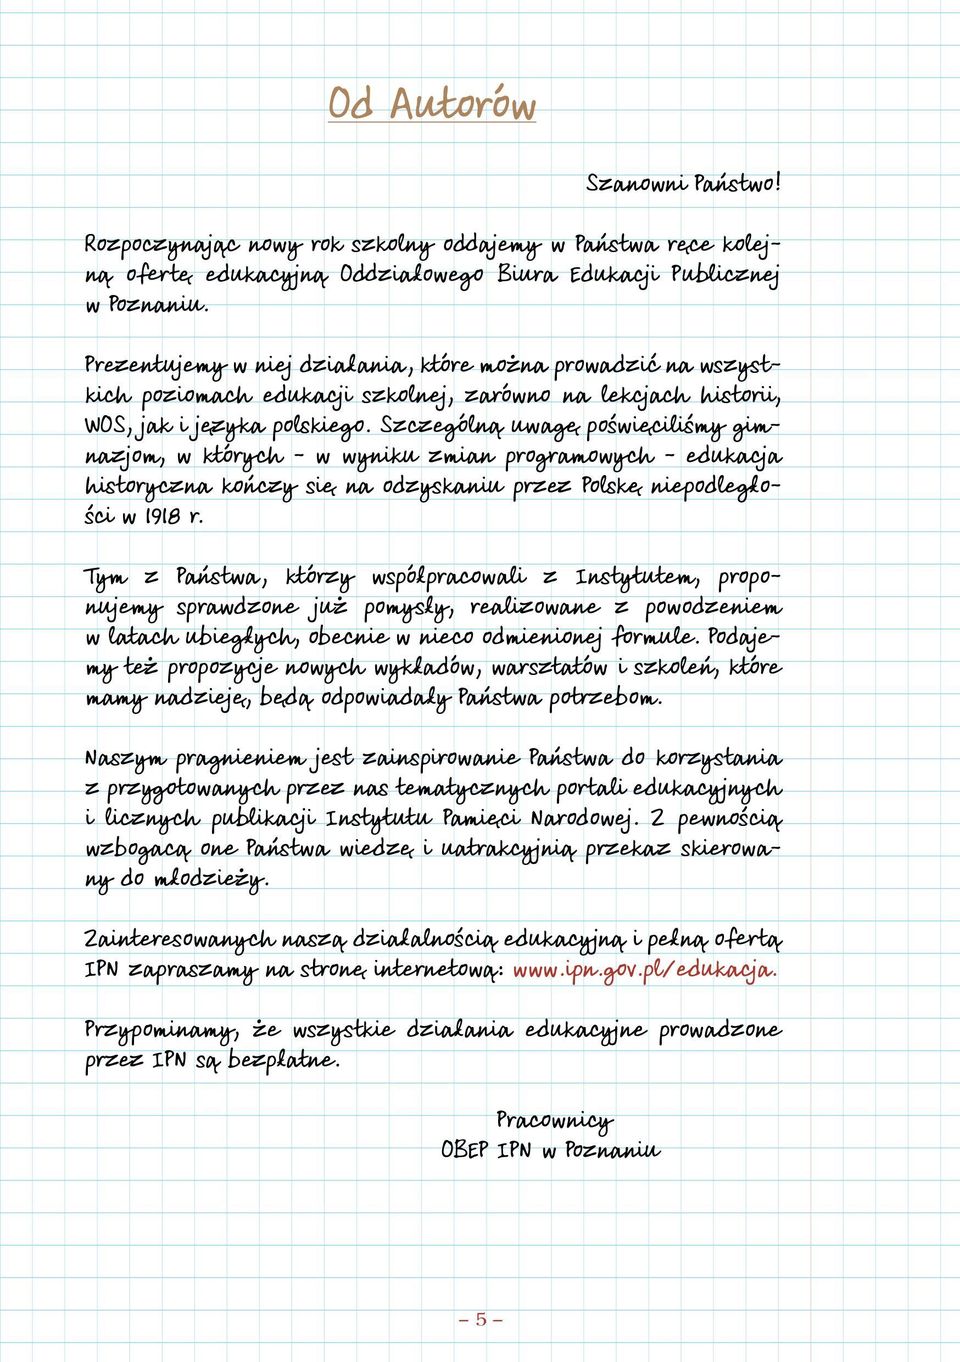 Od Autorów
Szanowni Państwo!
Rozpoczynając nowy rok szkolny oddajemy w Państwa ręce kolej-
ną ofertę edukacyjną Oddziałowego Biura Edukacji Publicznej
w Poznaniu.
Prezentujemy w niej działania, które można prowadzić na wszyst-
kich poziomach edukacji szkolnej, zarówno na lekcjach historii,
WOS, jak i języka polskiego. Szczególną uwagę poświęciliśmy gim-
nazjom, w których – w wyniku zmian programowych – edukacja
historyczna kończy się na odzyskaniu przez Polskę niepodległo-
ści w 1918 r.
Tym z Państwa, którzy współpracowali z Instytutem, propo-
nujemy sprawdzone już pomysły, realizowane z powodzeniem
w latach ubiegłych, obecnie w nieco odmienionej formule. Podaje-
my też propozycje nowych wykładów, warsztatów i szkoleń, które
mamy nadzieję, będą odpowiadały Państwa potrzebom.
Naszym pragnieniem jest zainspirowanie Państwa do korzystania
z przygotowanych przez nas tematycznych portali edukacyjnych
i licznych publikacji Instytutu Pamięci Narodowej. Z pewnością
wzbogacą one Państwa wiedzę i uatrakcyjnią przekaz skierowa-
ny do młodzieży.
Zainteresowanych naszą działalnością edukacyjną i pełną ofertą
IPN zapraszamy na stronę internetową: www.ipn.gov.pl/edukacja.
Przypominamy, że wszystkie działania edukacyjne prowadzone
przez IPN są bezpłatne.
Pracownicy
OBEP IPN w Poznaniu
– 5 –